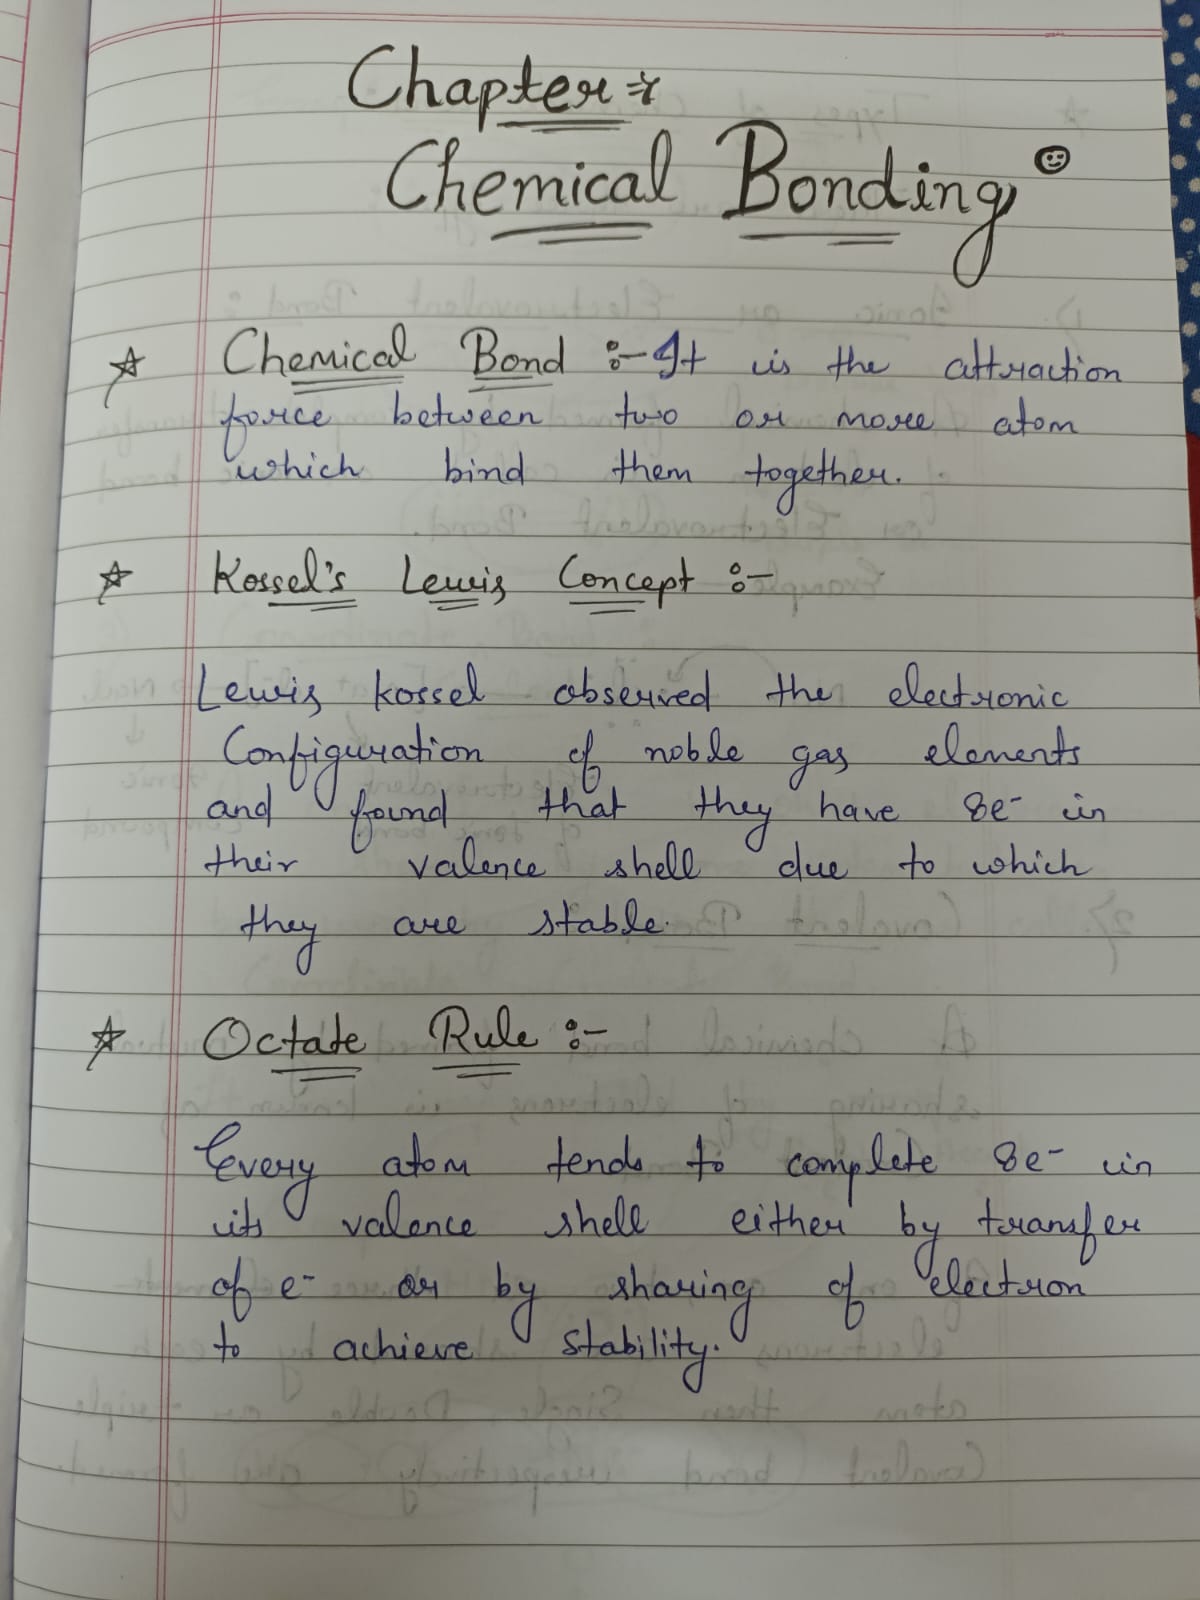 Chapter :-
Chemical Bonding
☆ Chemical Bond :- It is the attraction
force between two or more atom
which bind them together.
☆ Kossel's Lewis Concept :-
Lewis Kossel observed the electronic
Configuration of noble gas elements
and found that they have 8e⁻ in
their valence shell due to which
they are stable.
☆ Octate Rule :-
Every atom tends to complete 8e⁻ in
its valence shell either by transfer
of e⁻ or by sharing of electron
to achieve stability.